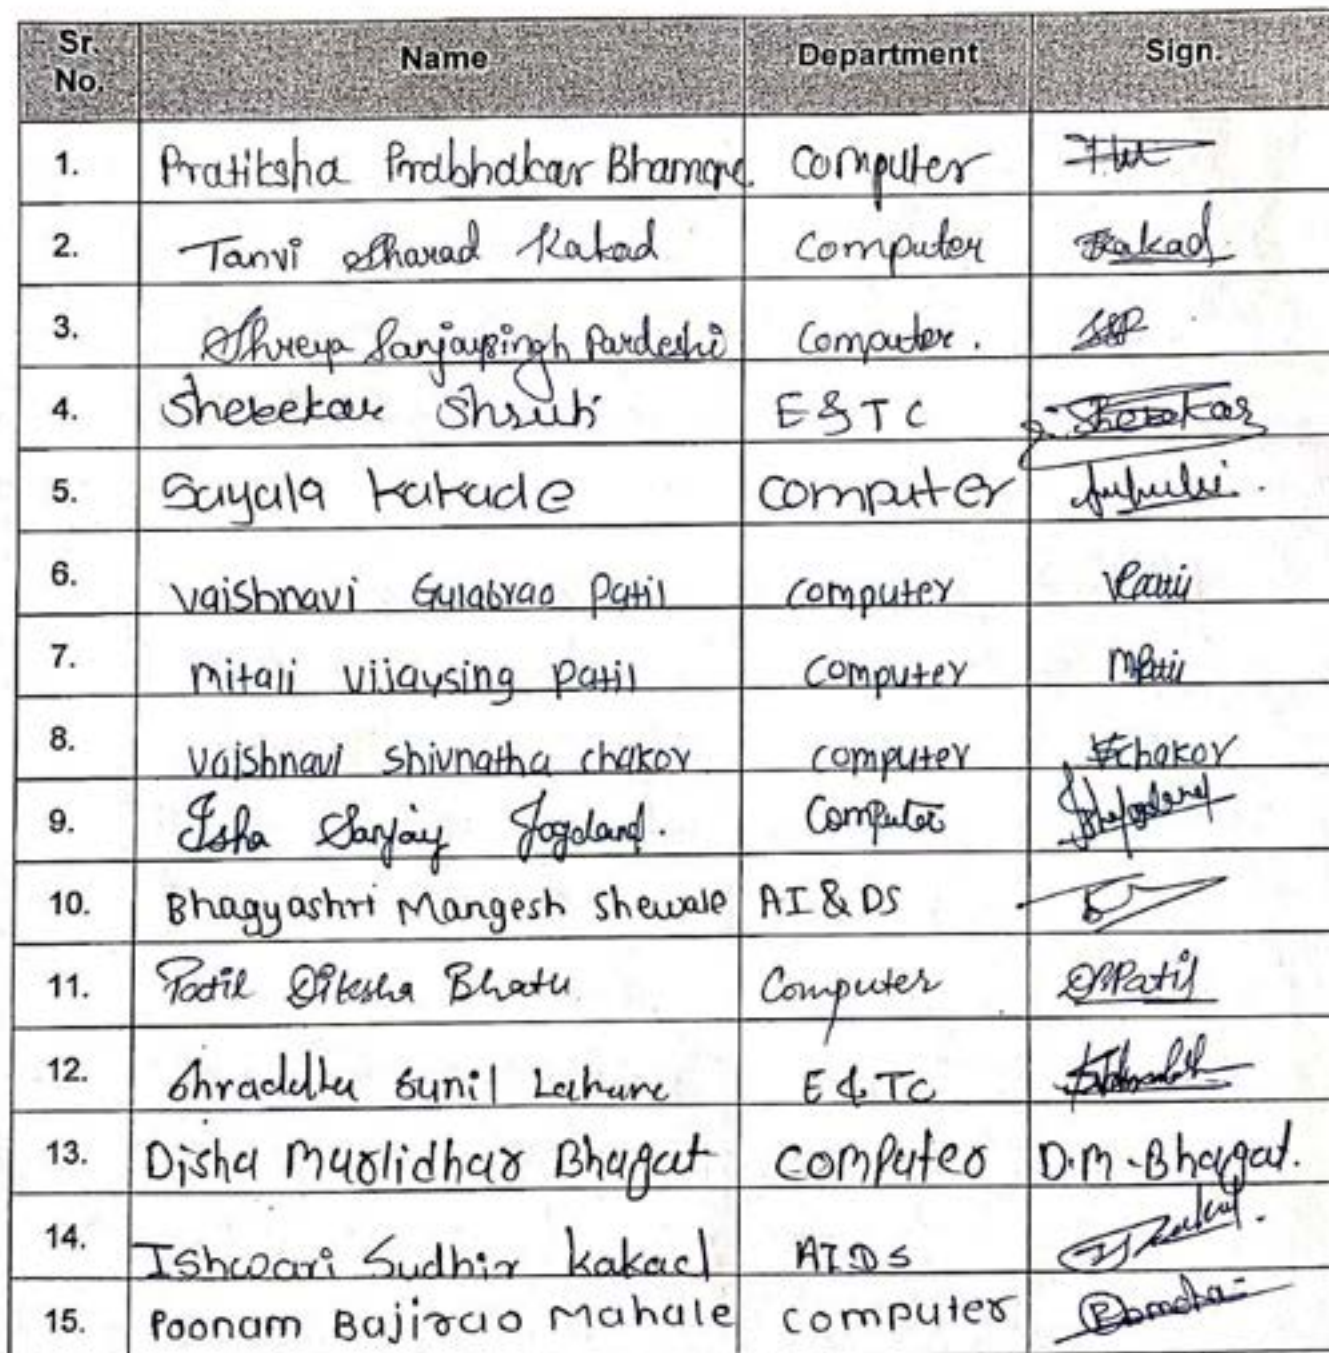 Sr. No. Name Department Sign.
1. Pratiksha Prabhakar Bhamare Computer
2. Tanvi Sharad Kakad Computer Kakad
3. Shreya Sanjaysingh Pardeshi Computer.
4. Sherekar Shruti E & T C Sherekar
5. Sayala Kakade Computer
6. Vaishnavi Gulabrao Patil Computer VPatil
7. Mitali Vijaysing Patil Computer MPatil
8. Vaishnavi Shivnatha Chakor Computer VChakor
9. Isha Sanjay Jogdand. Computer
10. Bhagyashri Mangesh Shewale AI & DS
11. Patil Diksha Bhatu Computer DBPatil
12. Shraddha Sunil Lahare E & TC
13. Disha Murlidhar Bhagat Computer D.M.Bhagat.
14. Ishwari Sudhir Kakad AIDS
15. Poonam Bajirao Mahale Computer